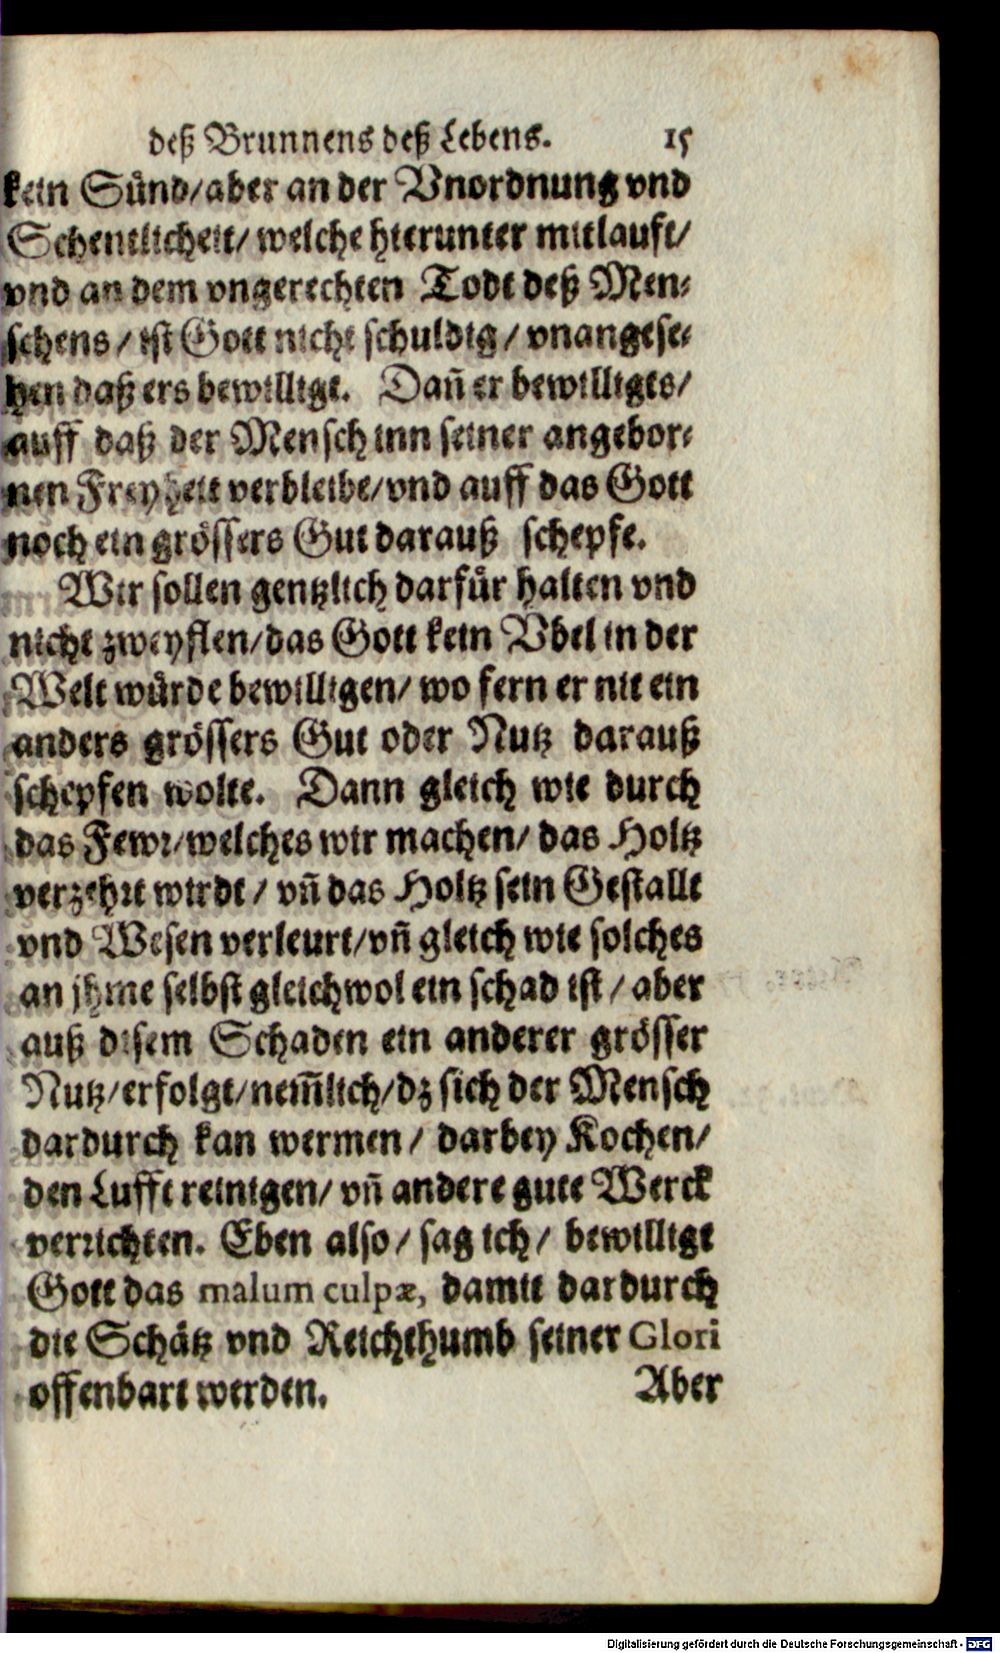 deß Brunnens deß Lebens. 15
kein Sünd/aber an der Vnordnung vnd
Schentlicheit/ welche hierunter mitlauft/
vnd an dem vngerechten Todt deß Men⸗
schens / ist Gott nicht schuldig / vnangese⸗
hen daß ers bewilligt. Dañ er bewilligts/
auff daß der Mensch inn seiner angebor⸗
nen Freyheit verbleibe/vnd auff das Gott
noch ein grössers Gut darauß schepfe.
Wir sollen gentzlich darfür halten vnd
nicht zweyflen/das Gott kein Vbel in der
Welt würde bewilligen/ wo fern er nit ein
anders grössers Gut oder Nutz darauß
schepfen wolte. Dann gleich wie durch
das Fewr/welches wir machen/ das Holtz
verzehrt wirdt / vñ das Holtz sein Gestallt
vnd Wesen verleurt/vñ gleich wie solches
an jhme selbst gleichwol ein schad ist / aber
auß disem Schaden ein anderer grösser
Nutz/erfolgt/nem̃lich/dz sich der Mensch
dardurch kan wermen / darbey Kochen/
den Lufft reinigen/ vñ andere gute Werck
verrichten. Eben also / sag ich / bewilligt
Gott das malum culpæ, damit dardurch
die Schätz vnd Reichthumb seiner Glori
offenbart werden. Aber
Digitalisierung gefördert durch die Deutsche Forschungsgemeinschaft - DFG